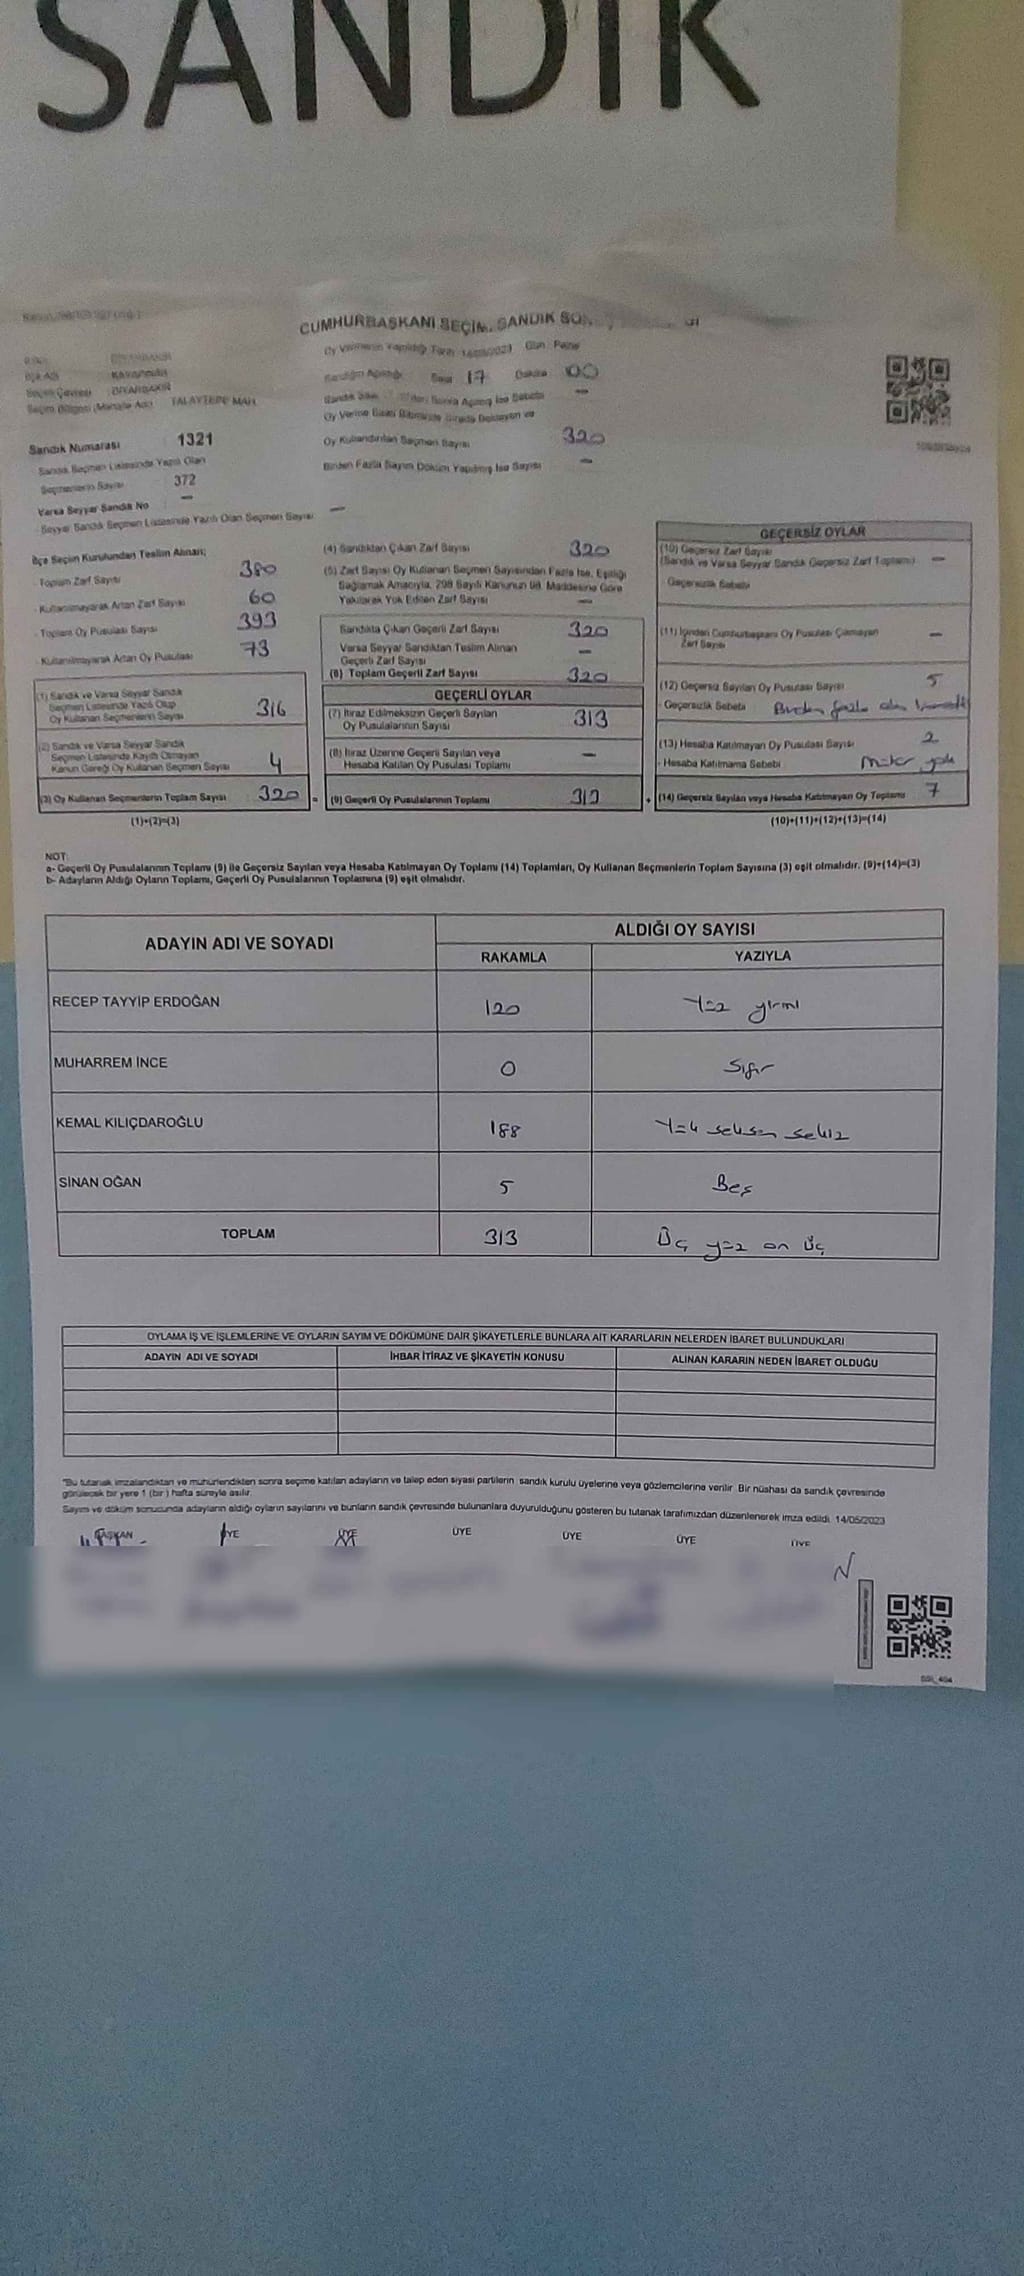 SANDIK
CUMHURBAŞKANI SEÇİM SANDIK
Oy Vermenin Yapıldığı Tarih 14/05/2023 Gün Pazar
Sandığın Açıldığı Saat 17 Dakika 00
İlçe Adı KAYAPINAR
Seçim Çevresi DİYARBAKIR
Seçim Bölgesi (Mahalle Adı) TALAYTEPE MAH.
Sandık Numarası 1321
Sandık Seçmen Listesinde Yazılı Olan
Seçmenlerin Sayısı 372
Varsa Seyyar Sandık No –
- Seyyar Sandık Seçmen Listesinde Yazılı Olan Seçmen Sayısı –
Oy Verme Bitiş Sırada Bekleyen ve
Oy Kullandırılan Seçmen Sayısı 320
Birden Fazla Sayım Döküm Yapılmış İse Sayısı –
İlçe Seçim Kurulundan Teslim Alınan;
- Toplam Zarf Sayısı 380
- Kullanılmayarak Artan Zarf Sayısı 60
- Toplam Oy Pusulası Sayısı 393
- Kullanılmayarak Artan Oy Pusulası 73
(1) Sandık ve Varsa Seyyar Sandık
Seçmen Listesinde Yazılı Olup
Oy Kullanan Seçmenlerin Sayısı 316
(2) Sandık ve Varsa Seyyar Sandık
Seçmen Listesinde Kayıtlı Olmayan
Kanun Gereği Oy Kullanan Seçmen Sayısı 4
(3) Oy Kullanan Seçmenlerin Toplam Sayısı 320 =
(1)+(2)=(3)
(4) Sandıktan Çıkan Zarf Sayısı 320
(5) Zarf Sayısı Oy Kullanan Seçmen Sayısından Fazla İse, Eşitliği
Sağlamak Amacıyla, 298 Sayılı Kanunun 98. Maddesine Göre
Yakılarak Yok Edilen Zarf Sayısı –
Sandıkta Çıkan Geçerli Zarf Sayısı 320
Varsa Seyyar Sandıktan Teslim Alınan
Geçerli Zarf Sayısı –
(6) Toplam Geçerli Zarf Sayısı 320
GEÇERLİ OYLAR
(7) İtiraz Edilmeksizin Geçerli Sayılan
Oy Pusulalarının Sayısı 313
(8) İtiraz Üzerine Geçerli Sayılan veya
Hesaba Katılan Oy Pusulası Toplamı –
(9) Geçerli Oy Pusulalarının Toplamı 313 +
GEÇERSİZ OYLAR
(10) Geçersiz Zarf Sayısı
(Sandık ve Varsa Seyyar Sandık Geçersiz Zarf Toplamı) –
Geçersizlik Sebebi
(11) İçinden Cumhurbaşkanı Oy Pusulası Çıkmayan
Zarf Sayısı –
(12) Geçersiz Sayılan Oy Pusulası Sayısı 5
- Geçersizlik Sebebi Birden fazla
(13) Hesaba Katılmayan Oy Pusulası Sayısı 2
- Hesaba Katılmama Sebebi Mühür yok
(14) Geçersiz Sayılan veya Hesaba Katılmayan Oy Toplamı 7
(10)+(11)+(12)+(13)=(14)
NOT:
a- Geçerli Oy Pusulalarının Toplamı (9) ile Geçersiz Sayılan veya Hesaba Katılmayan Oy Toplamı (14) Toplamları, Oy Kullanan Seçmenlerin Toplam Sayısına (3) eşit olmalıdır. (9)+(14)=(3)
b- Adayların Aldığı Oyların Toplamı, Geçerli Oy Pusulalarının Toplamına (9) eşit olmalıdır.
ADAYIN ADI VE SOYADI
ALDIĞI OY SAYISI
RAKAMLA YAZIYLA
RECEP TAYYİP ERDOĞAN 120 Yüz yirmi
MUHARREM İNCE 0 Sıfır
KEMAL KILIÇDAROĞLU 188 Yüz seksen sekiz
SİNAN OĞAN 5 Beş
TOPLAM 313 Üç yüz on üç
OYLAMA İŞ VE İŞLEMLERİNE VE OYLARIN SAYIM VE DÖKÜMÜNE DAİR ŞİKAYETLERLE BUNLARA AİT KARARLARIN NELERDEN İBARET BULUNDUKLARI
ADAYIN ADI VE SOYADI İHBAR İTİRAZ VE ŞİKAYETİN KONUSU ALINAN KARARIN NEDEN İBARET OLDUĞU
"Bu tutanak imzalandıktan ve mühürlendikten sonra seçime katılan adayların ve talep eden siyasi partilerin sandık kurulu üyelerine veya gözlemcilerine verilir. Bir nüshası da sandık çevresinde
görülecek bir yere 1 (bir) hafta süreyle asılır.
Sayım ve döküm sonucunda adayların aldığı oyların sayılarını ve bunların sandık çevresinde bulunanlara duyurulduğunu gösteren bu tutanak tarafımızdan düzenlenerek imza edildi. 14/05/2023
BAŞKAN ÜYE ÜYE ÜYE ÜYE ÜYE ÜYE